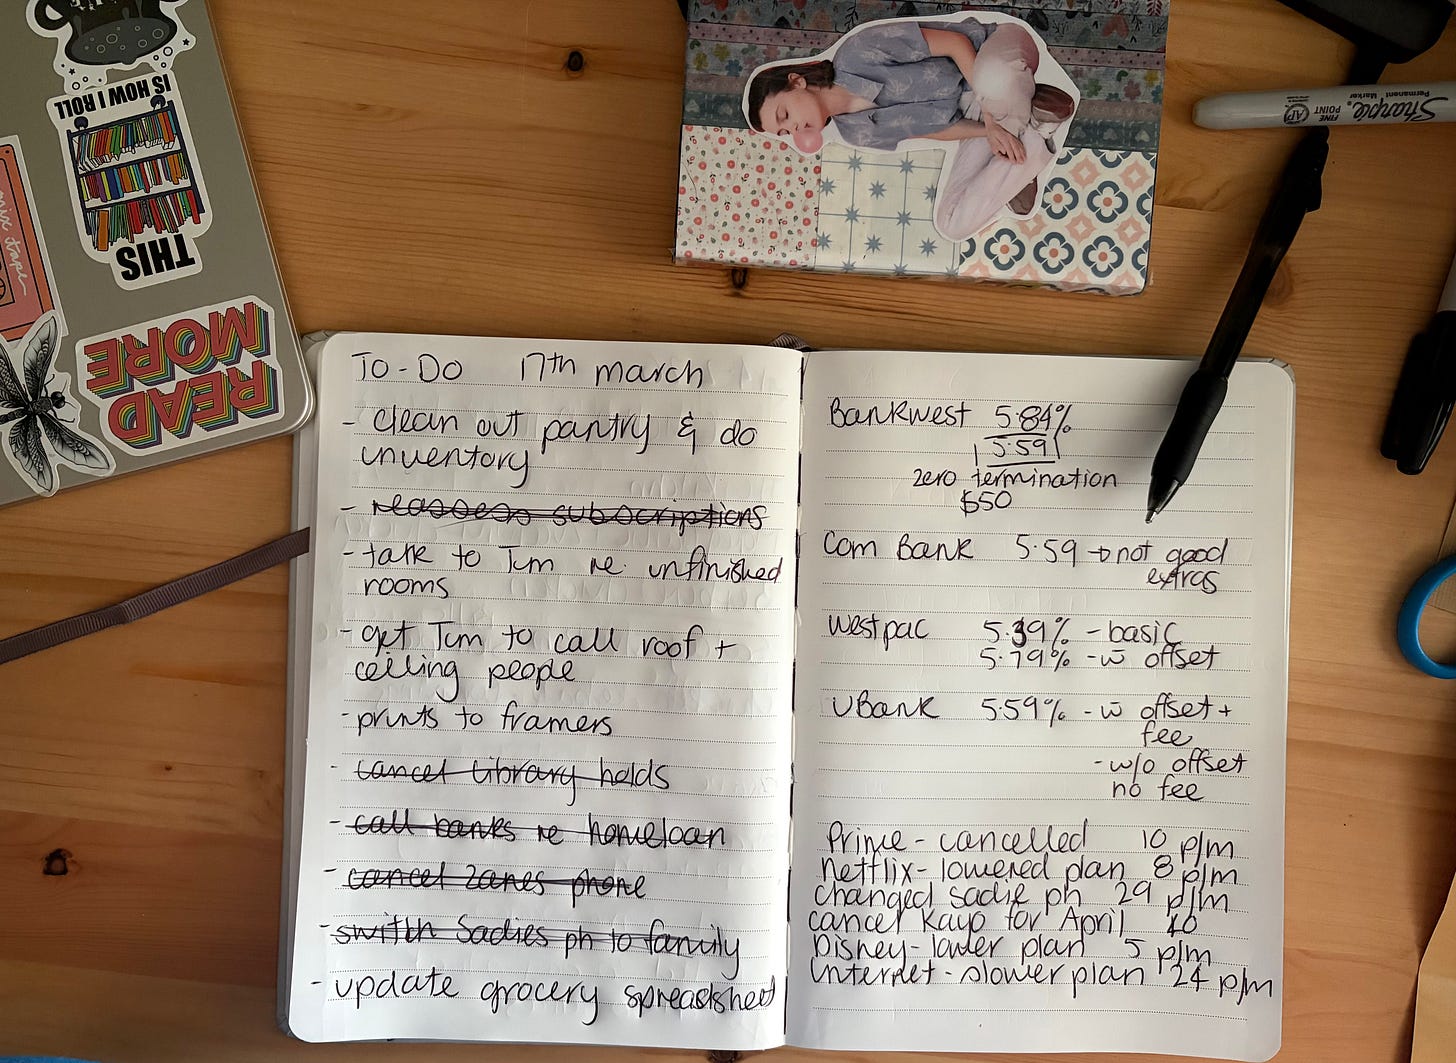 THIS
IS HOW I ROLL
READ
MORE
mix tape
Sharpie
FINE POINT
Permanent Marker
AP
To-Do 17th march
- clean out pantry & do
inventory
- reassess subscriptions
- talk to Tim re unfinished
rooms
- get Tim to call roof +
ceiling people
- prints to framers
- cancel library holds
- call banks re homeloan
- cancel Zanes phone
- switch Sadies ph to family
- update grocery spreadsheet
Bankwest 5.84%
5.59
zero termination
$50
Com Bank 5.59 → not good
extras
Westpac 5.39% - basic
5.79% - w offset
UBank 5.59% - w offset +
fee
- w/o offset
no fee
Prime - cancelled 10 p/m
Netflix - lowered plan 8 p/m
changed Sadie ph 29 p/m
cancel Kayo for April 40
Disney - lower plan 5 p/m
internet - slower plan 24 p/m